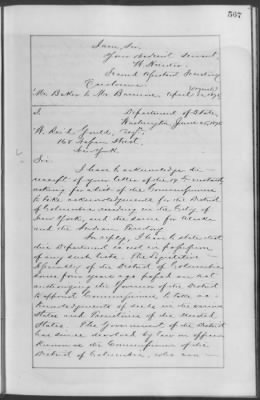 567
I am, Sir,
Your obedient Servant,
W. Hunter
Second Assistant Secretary
Enclosure
(Original)
Mr. Baker to Mr.
Department of State,
Washington, June
Esqr.
168 Street,
New York.
Sir:
I have to acknowledge the
receipt of your letter of the 19th instant,
asking for a list of the Commissioners
to take acknowledgments for the District
of Columbia residing in the City of
New York, and the same for Alaska
and the Indian Territory.
In reply, I have to state that
this Department is not in possession
of any such lists. The Legislative
Assembly of the District of Columbia
some four years ago passed an act
authorizing the Governor of the District
to appoint Commissioners to take ac-
knowledgments of deeds in the various
States and Territories of the United
States. The Government of the District
has since devolved by law on officers
known as the Commissioners of the
District of Columbia, who can